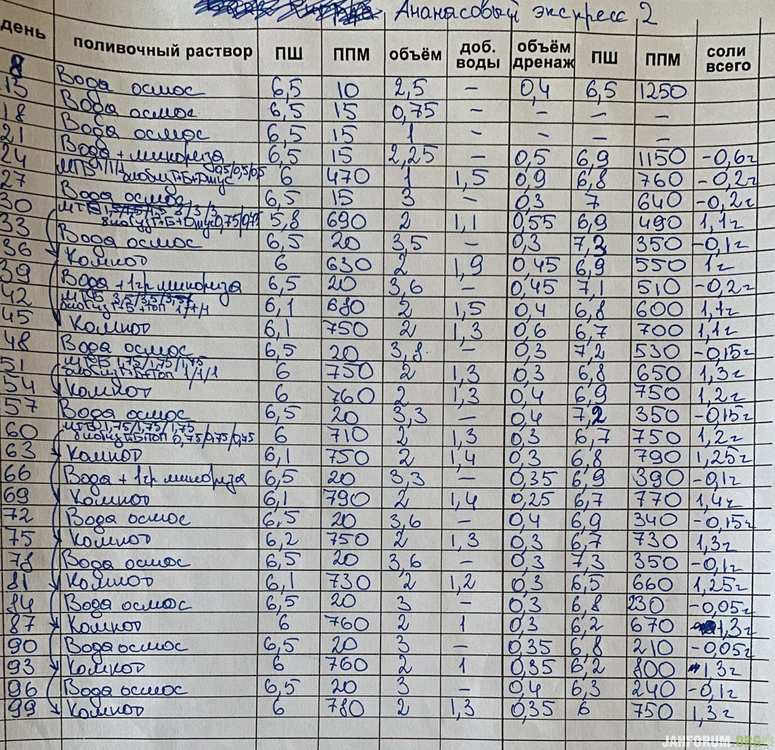 Ананасовый экспресс 2
день поливочный раствор ПШ ППМ объём доб. воды объём дренаж ПШ ППМ соли всего
8
15 Вода осмос 6,5 10 2,5 – 0,4 6,5 1250
18 Вода осмос 6,5 15 0,75 – – – –
21 Вода осмос 6,5 15 1 – – – –
24 Вода + микориза 6,5 15 2,25 – 0,5 6,9 1150 -0,6г
27 6 470 1 1,5 0,9 6,8 760 -0,2г
30 Вода осмос 6,5 15 3 – 0,3 7 640 -0,2г
33 5,8 690 2 1,1 0,55 6,9 490 1,1г
36 Вода осмос 6,5 20 3,5 – 0,3 7,3 350 -0,1г
39 Компот 6 630 2 1,9 0,45 6,9 550 1г
42 Вода + 1гр микориза 6,5 20 3,6 – 0,45 7,1 510 -0,2г
6,1 680 2 1,5 0,4 6,8 600 1,1г
45 Компот 6,1 750 2 1,3 0,6 6,7 700 1,1г
48 Вода осмос 6,5 20 3,8 – 0,3 7,2 530 -0,15г
51 1,75/1,75/1,75 1/1/1 6 750 2 1,3 0,3 6,8 650 1,3г
54 Компот 6 760 2 1,3 0,4 6,9 750 1,2г
57 Вода осмос 6,5 20 3,3 – 0,4 7,2 350 -0,15г
60 1,75/1,75/1,75 0,75/0,75/0,75 6 710 2 1,3 0,3 6,7 750 1,2г
63 Компот 6,1 750 2 1,4 0,3 6,8 790 1,25г
66 Вода + 1гр микориза 6,5 20 3,3 – 0,35 6,9 390 -0,1г
69 Компот 6,1 790 2 1,4 0,25 6,7 770 1,4г
72 Вода осмос 6,5 20 3,6 – 0,4 6,9 340 -0,15г
75 Компот 6,2 750 2 1,3 0,3 6,7 730 1,3г
78 Вода осмос 6,5 20 3,6 – 0,3 7,3 350 -0,1г
81 Компот 6,1 730 2 1,2 0,3 6,5 660 1,25г
84 Вода осмос 6,5 20 3 – 0,3 6,8 230 -0,05г
87 Компот 6 760 2 1 0,3 6,2 670 1,3г
90 Вода осмос 6,5 20 3 – 0,35 6,8 210 -0,05г
93 Компот 6 760 2 1 0,35 6,2 800 1,3г
96 Вода осмос 6,5 20 3 – 0,4 6,3 240 -0,1г
99 Компот 6 780 2 1,3 0,35 6 750 1,3г
JAHFORUM.ORG